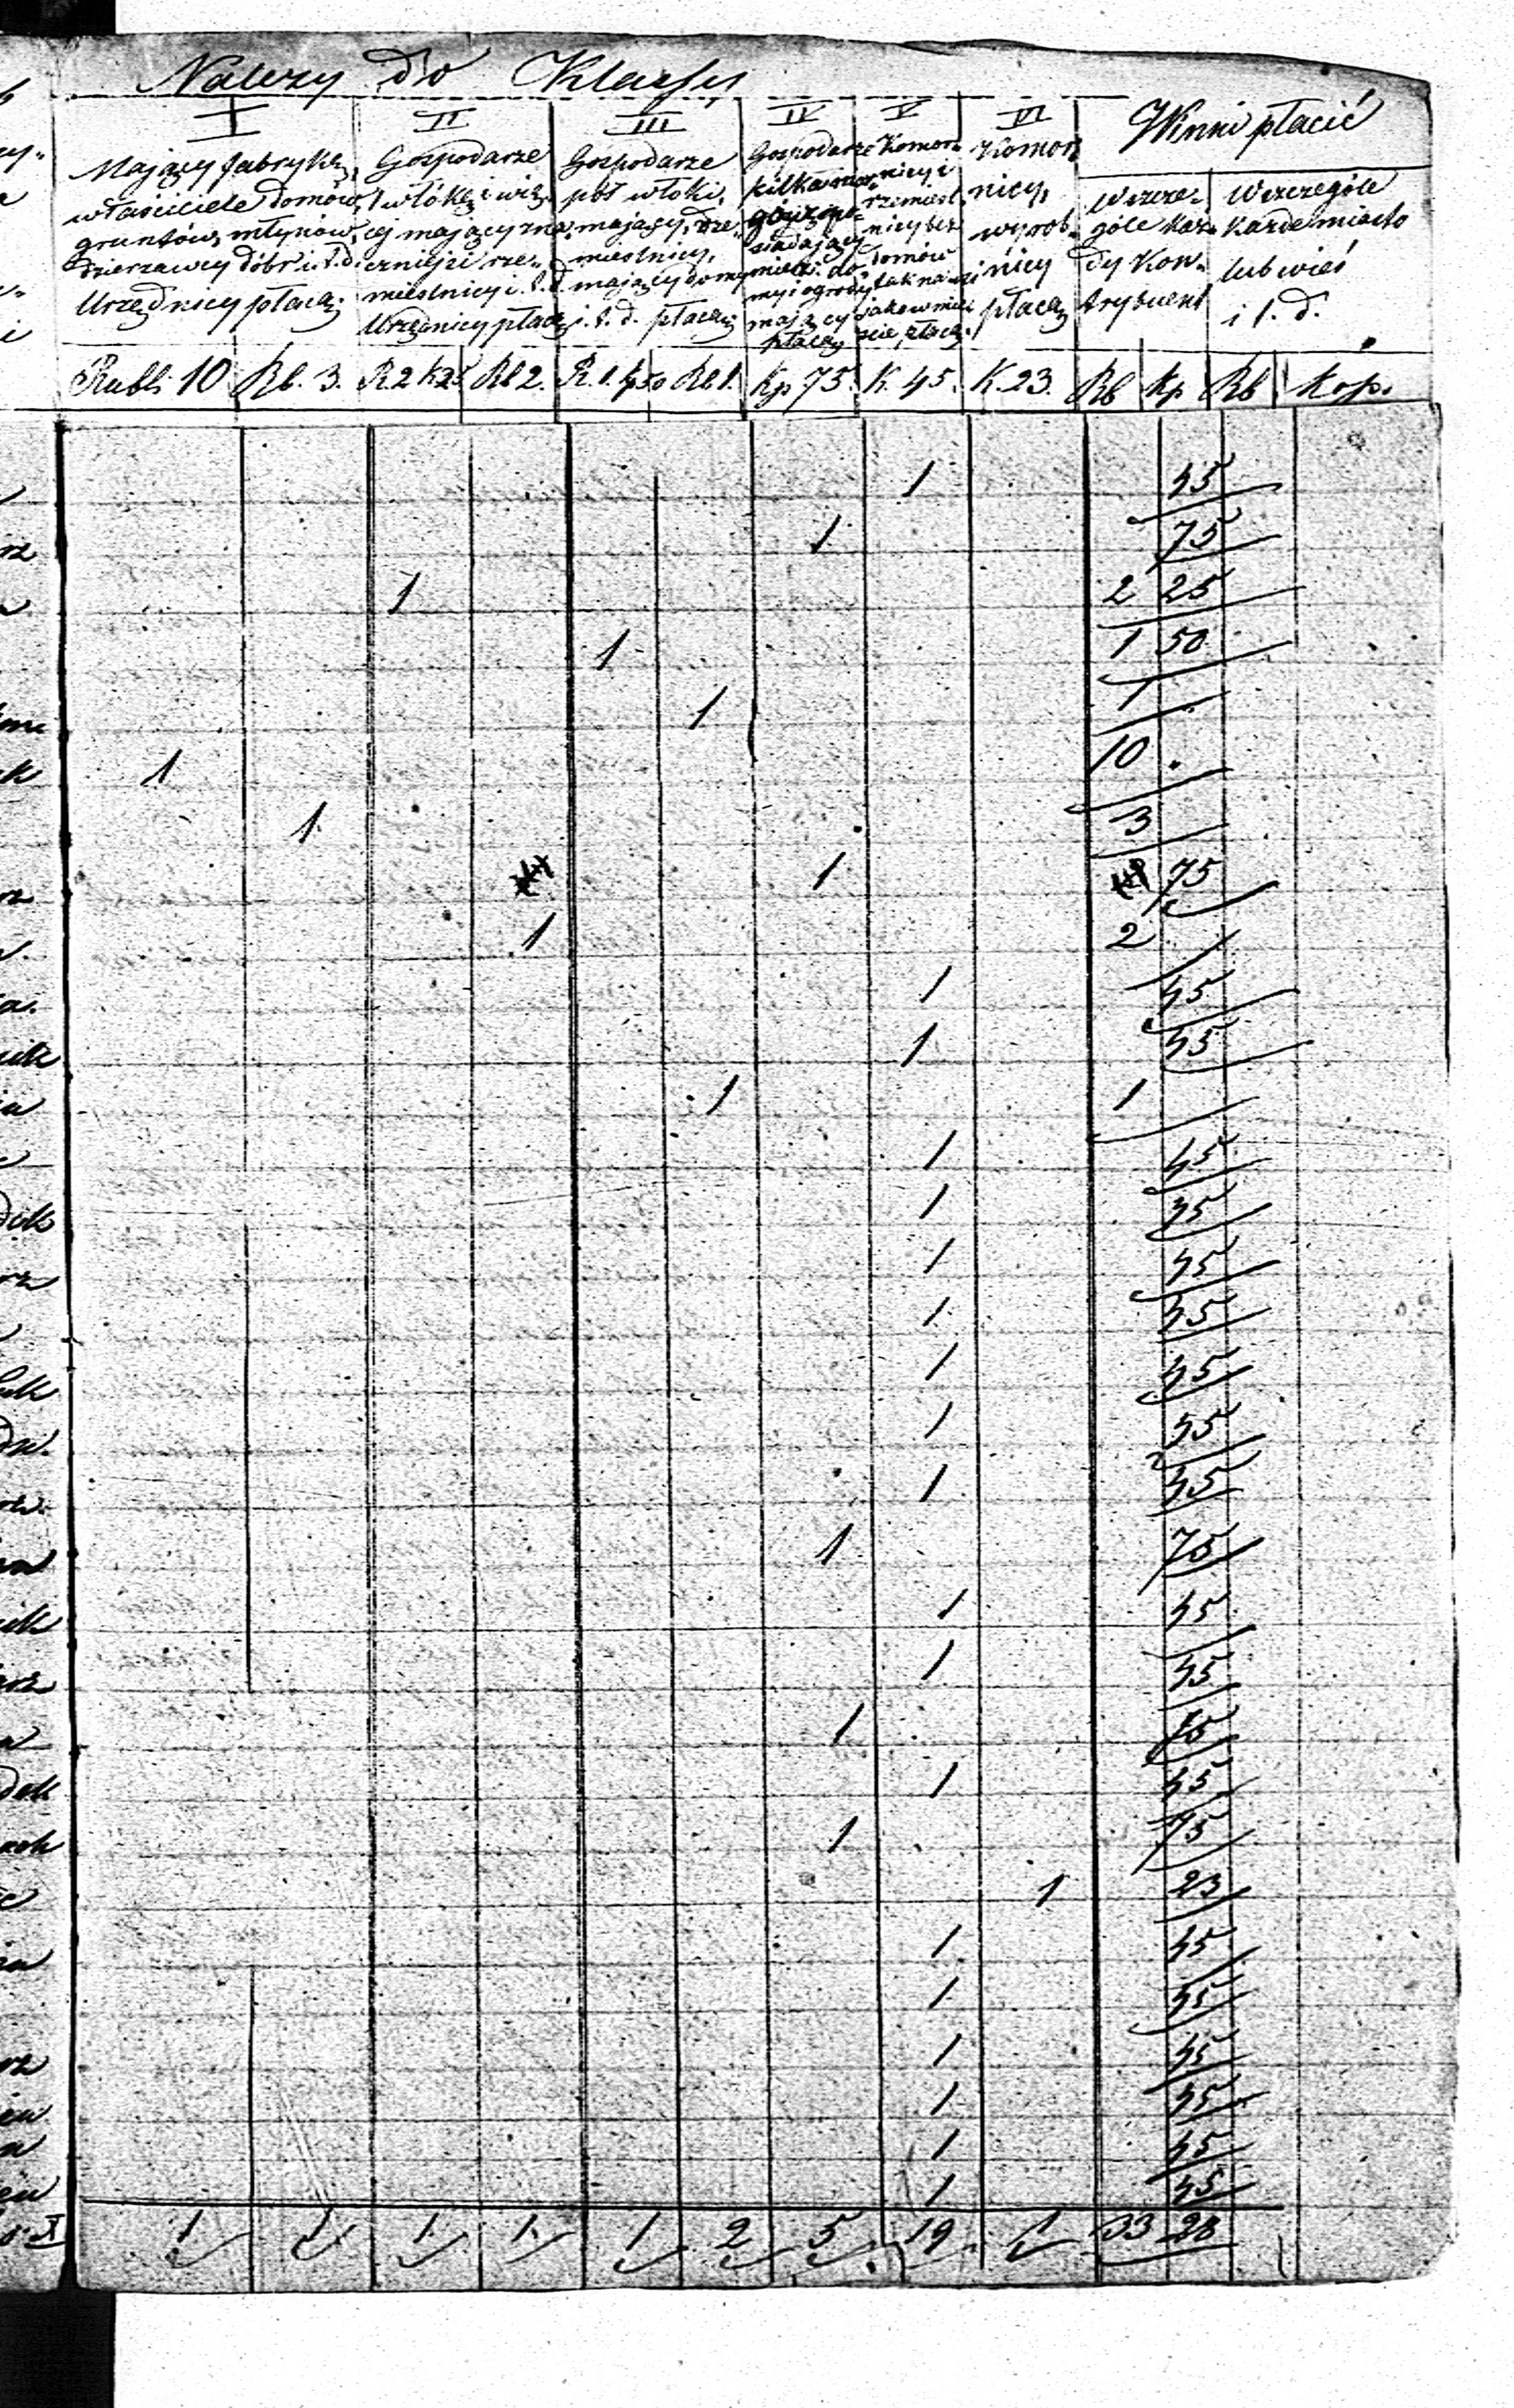 Należy do Klassy
I II III IV V VI Winni płacić
Mający fabrykę, właściciele domów, gruntów, młynów, dzierżawcy dóbr i. t. d. Urzędnicy płacą
Gospodarze 1 włókę i wię- cej mający zna- czniejsi rze- mieślnicy i. t. d. Urzędnicy płacą
Gospodarze pół włoki, mający, rze- mieślnicy, mający domy i. t. d. płacą
Gospodarze kilka mor- gów po- siadający mieki. do- my i ogrody mający płacą
Komor- nicy i rzemieśl- nicy bez domów tak na wsi jako w mie- ście płacą
Komor- nicy, wyrob- nicy płacą
W szcze- góle każ- dy Kon- trybuent
W szczególe każde miasto lub wieś i t. d.
Rubli 10 Rb. 3. R 2 k 25 Rb 2. R. 1. kp 50 Rb 1. Kp 75. K. 45. K. 23. Rb Kp. Rb Kop.
1 45
1 75
1 2 25
1 1 50
1 1
1 10
1 3
1 75
1 2
1 45
1 45
1 1
1 45
1 45
1 45
1 45
1 45
1 45
1 45
1 75
1 45
1 45
1 75
1 45
1 75
1 23
1 45
1 45
1 45
1 45
1 45
1 45
1 1 1 1 1 2 5 19 1 33 28